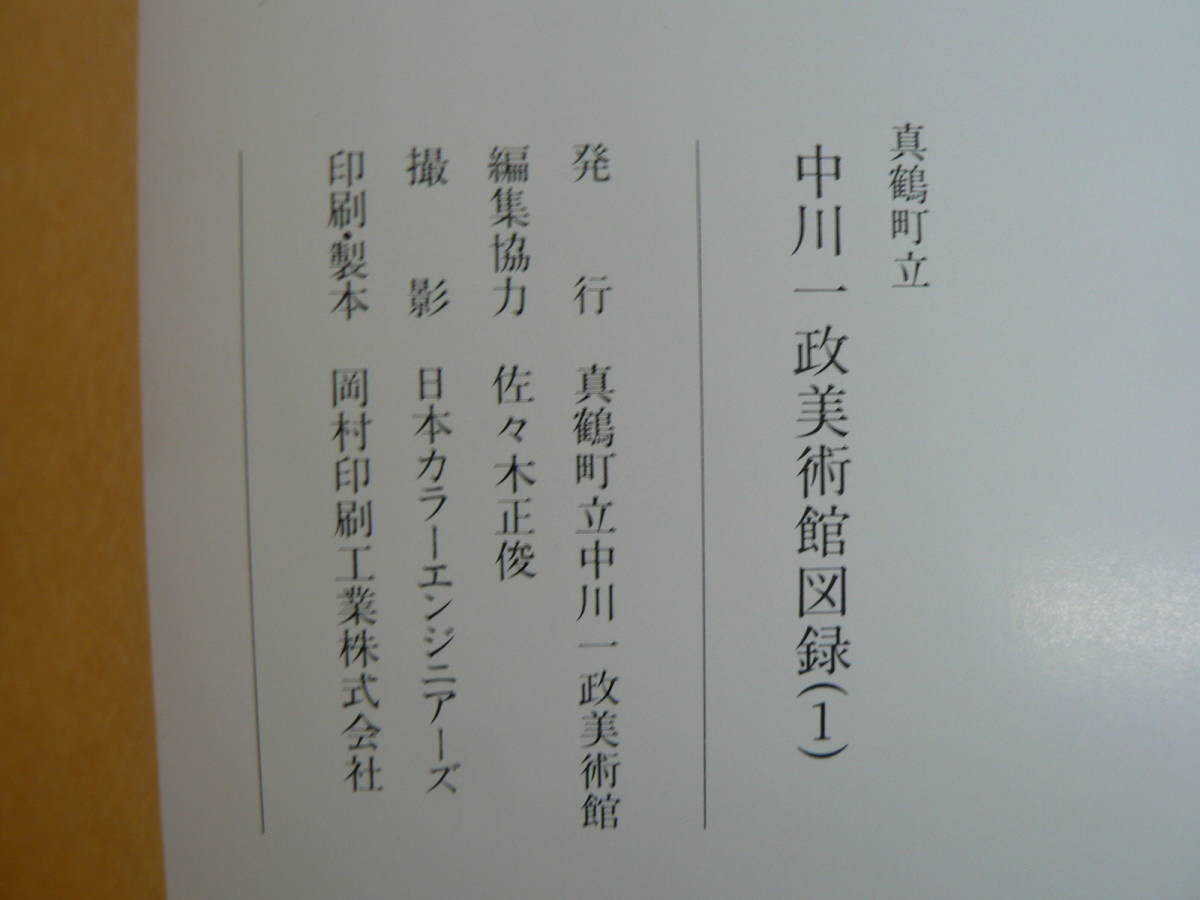 真鶴町立
中川一政美術館図録(1)
発行 真鶴町立中川一政美術館
編集協力 佐々木正俊
撮影 日本カラーエンジニアーズ
印刷・製本 岡村印刷工業株式会社